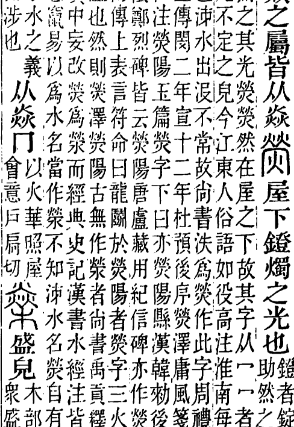 之屬皆从焱 熒 屋下鐙燭之光也 鐙者錠
助然之
之其光熒熒然在屋之下故其字从冂冂者
光不定之皃今江東人俗語如役高注淮南每
泲水出沒不常故尚書泆爲熒作此字周禮
傳閔二年宣十二年杜預後序熒澤鄘風箋
注熒陽玉篇熒字下曰亦熒陽縣漢韓勑後
鄭烈碑皆云熒陽唐盧藏用紀信碑亦作熒
傳上表言符命曰龍鬭於熒陽者熒字三火
也然則熒澤熒陽古無作滎者尚書禹貢釋
中妄改熒爲滎而經典史記漢書水經注皆
竄易以爲水名當作滎不知泲水名熒自有
水之義
涉也
从焱冂 以火華照屋
會意戶扃切
燊 盛皃 木部
眾盛